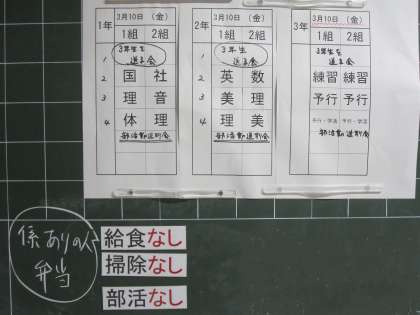 1年 3月10日（金）
1組 2組
1 3年生を
送る会
2 国 社
3 理 音
4 体 理
部活動送別会
2年 3月10日（金）
1組 2組
1 3年生
送る会
2 英 数
3 美 理
4 理 美
部活動送別会
3年 3月10日（金）
1組 2組
3年生を
送る会
練習 練習
予行 予行
予行・学活 予行・学活
部活動送別会
係ありの人
弁当
給食なし
掃除なし
部活なし